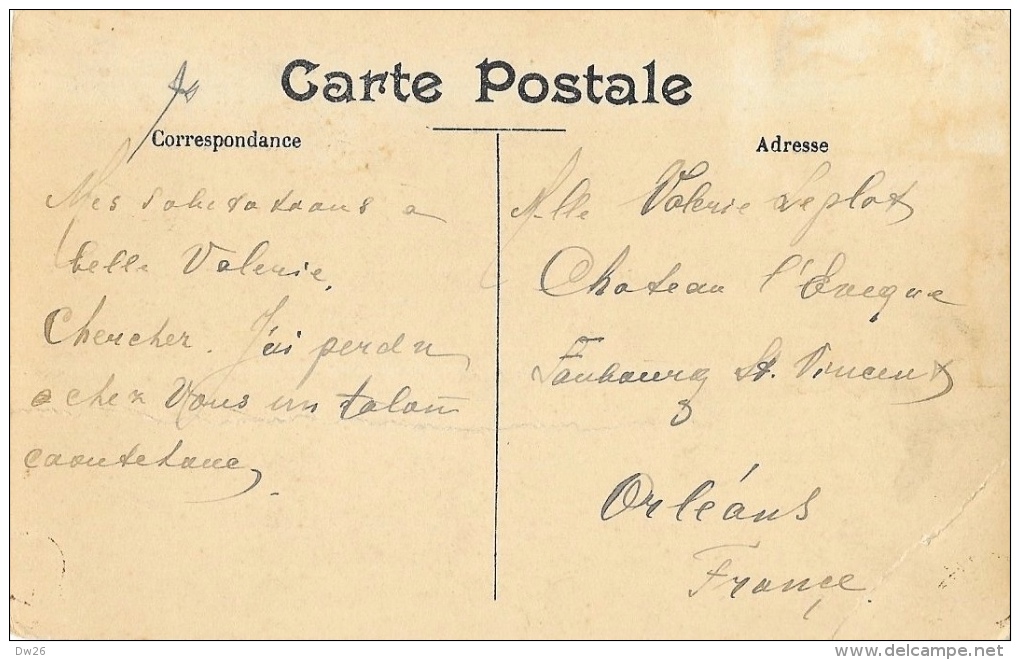 Carte Postale
Correspondance
Adresse
Mes salutations a
belle Valerie,
Chercher. J'ai perdu
chez Vous un talon
caoutchouc
Mlle Valerie Leplat
Chateau l'Eveque
Faubourg St. Vincent
Orléans
France
Dw26
www.delcampe.net